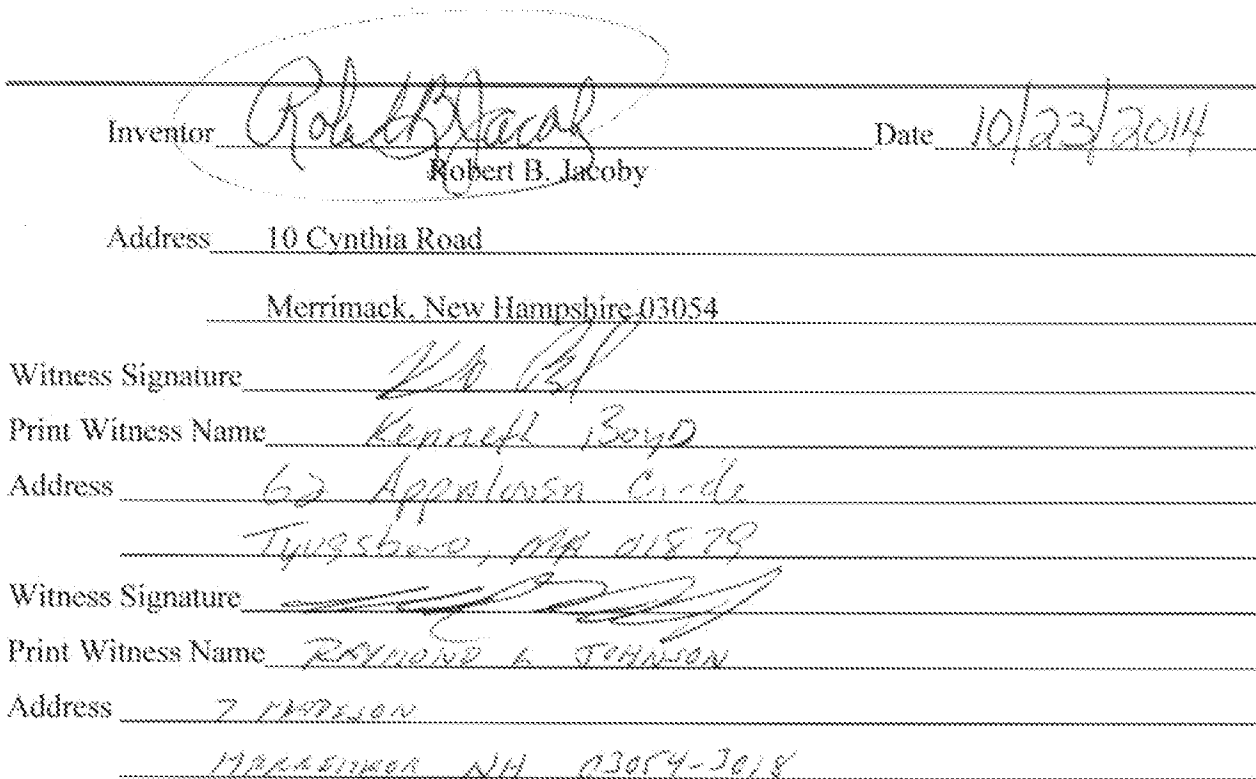 Inventor Robert B Jacoby Date 10/23/2014
Robert B. Jacoby
Address 10 Cynthia Road
Merrimack, New Hampshire 03054
Witness Signature
Print Witness Name Kenneth Boyd
Address 62 Appaloosa Circle
Tyngsboro, MA 01879
Witness Signature
Print Witness Name RAYMOND L JOHNSON
Address 7
MERRIMACK NH 03054-3018